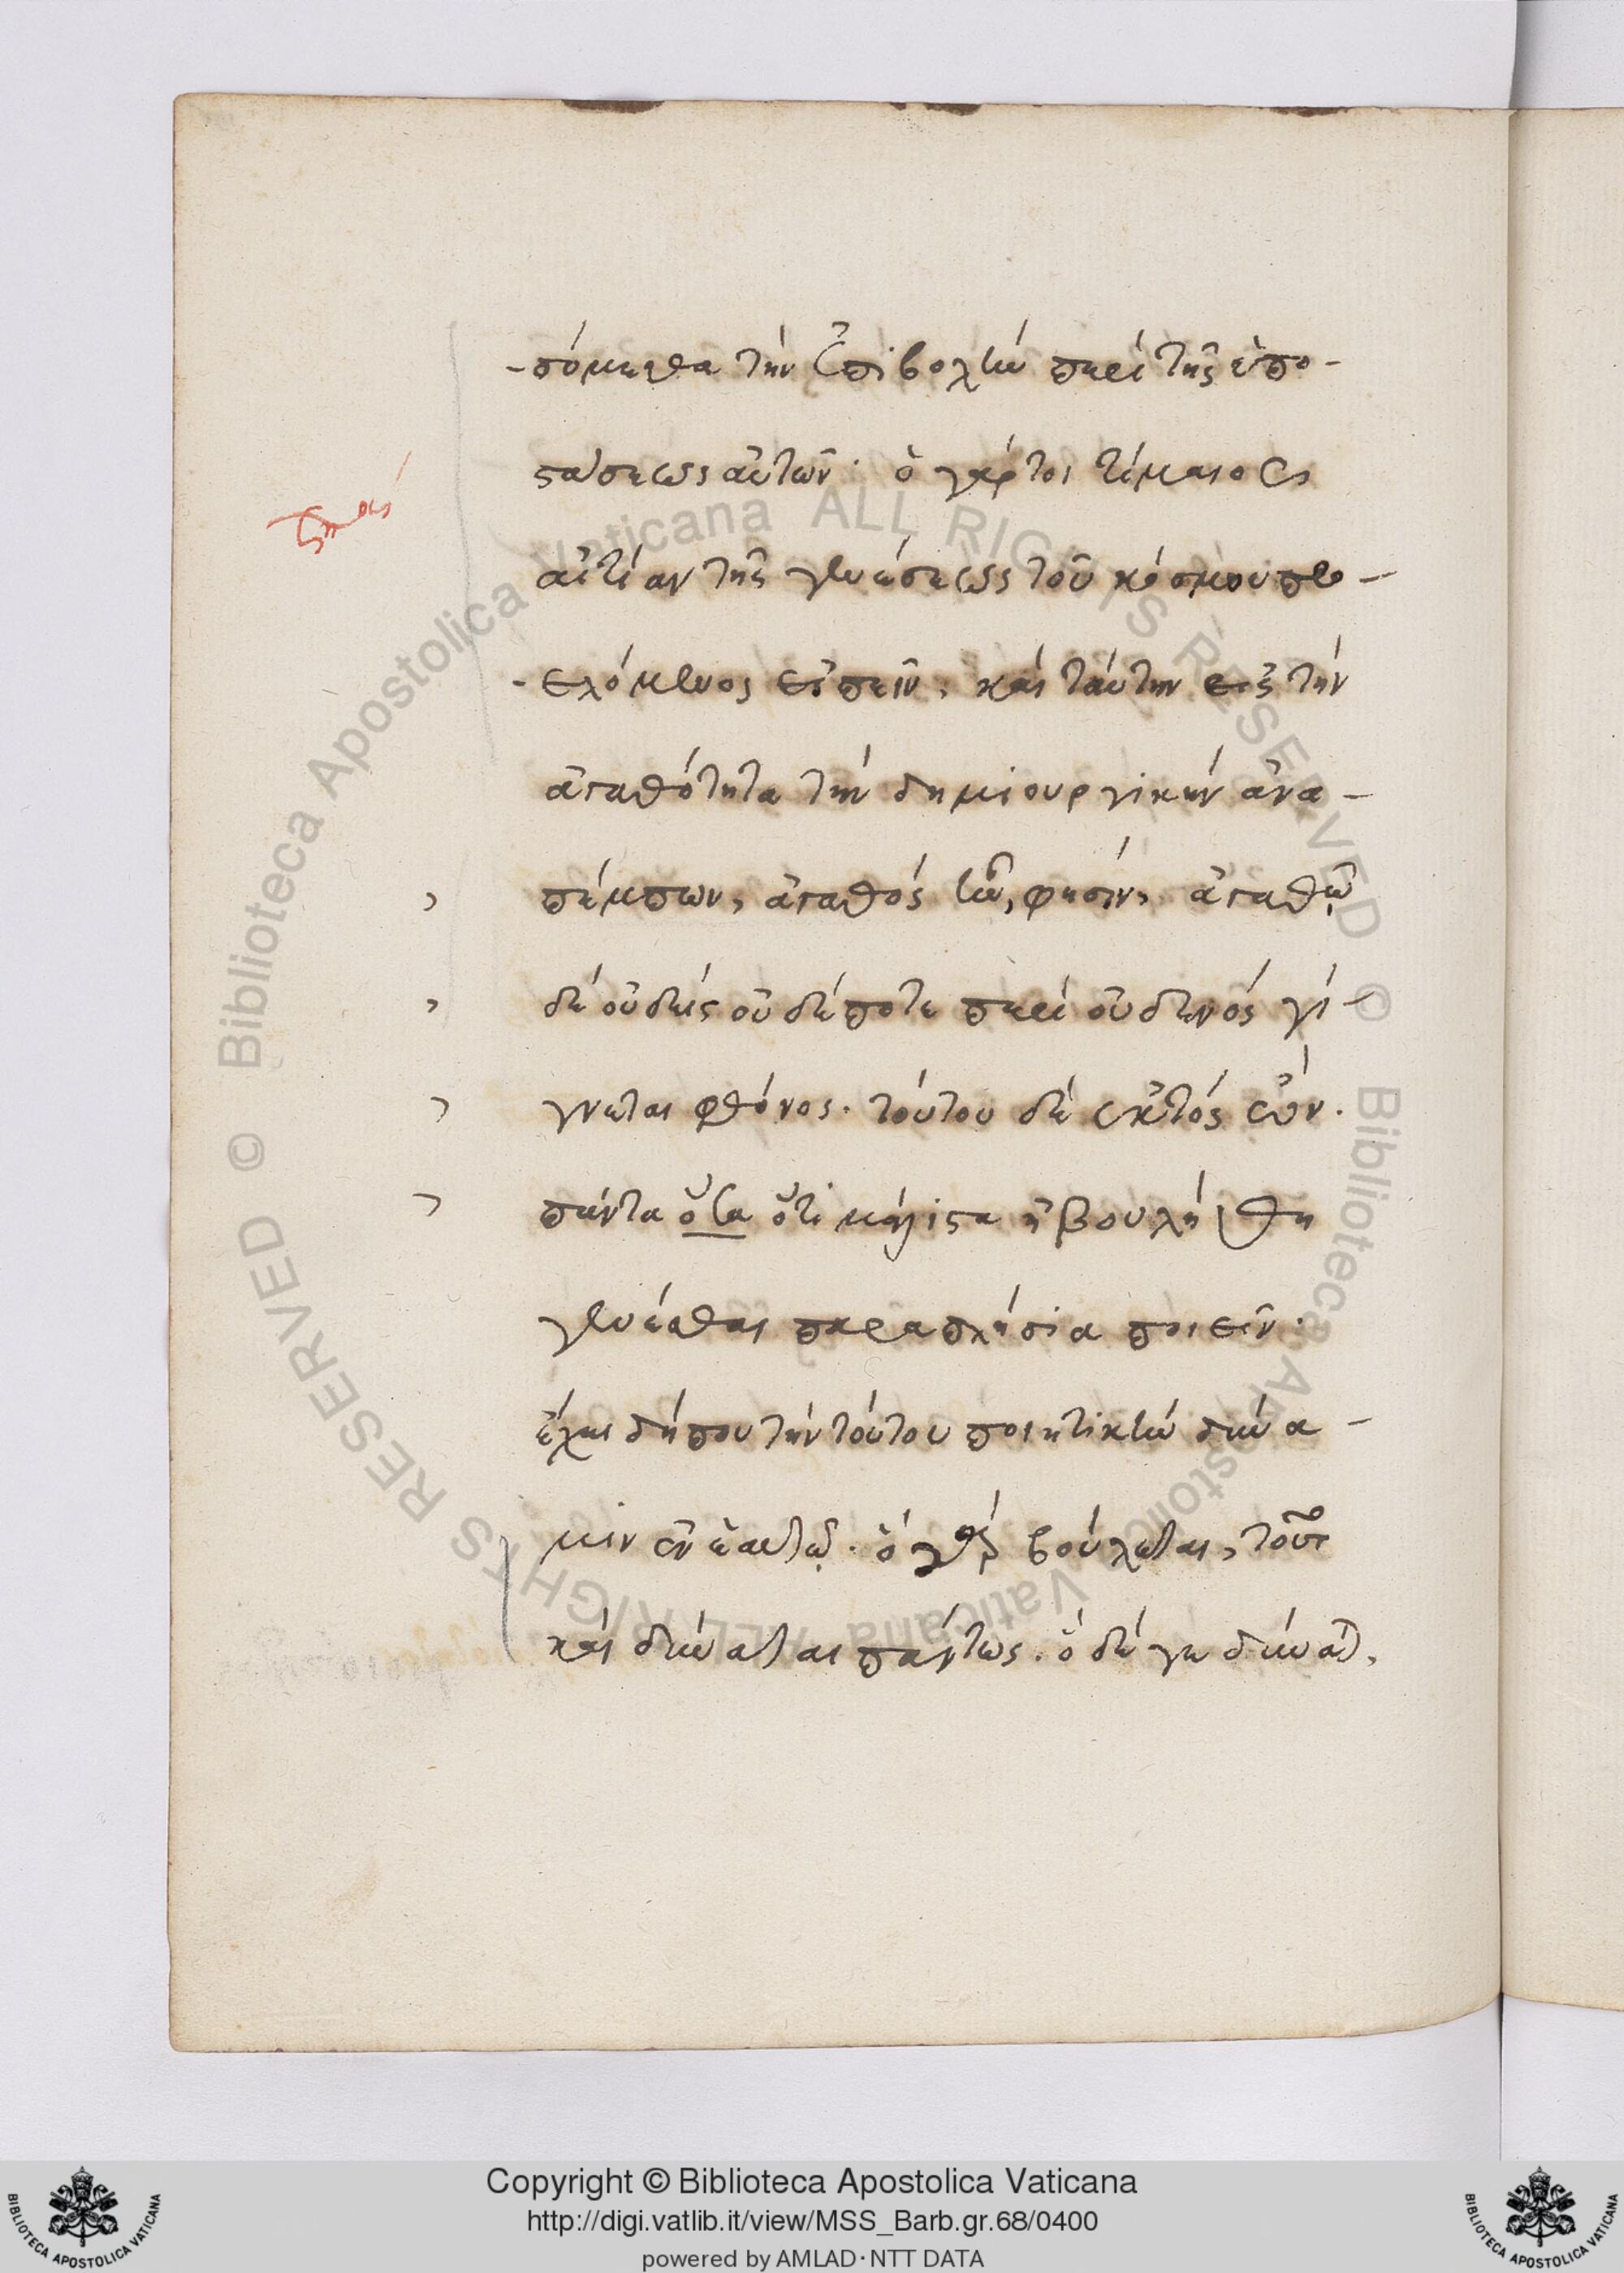 -πόμεσθα τὴν ἐπιβολὴν περὶ τῆς ὑπο-
στάσεως αὐτῶν· ὁ γάρ τοι τίμαιος
αἰτίαν τῆς γενέσεως τοῦ κόσμου προ-
-ελόμενος εἰπεῖν, καὶ ταύτην εἰς τὴν
ἀγαθότητα τὴν δημιουργικὴν ἀνα-
πέμπων, ἀγαθὸς ἦν, φησὶν, ἀγαθῷ
δὲ οὐδεὶς οὐδέποτε περὶ οὐδενὸς γί-
γνεται φθόνος. τούτου δὲ ἐκτὸς ὤν.
πάντα ὅσα ὅτι μάλιστα ἠβουλήθη
γενέσθαι παραπλήσια ποιεῖν·
ἔχει δήπου τὴν τούτου ποιητικὴν δύνα-
μιν ἐν ἑαυτῷ. ὃ γὰρ βούλεται, τοῦτο
καὶ δύναται πάντως. ὃ δέ γε δύναται,
Copyright © Biblioteca Apostolica Vaticana
http://digi.vatlib.it/view/MSS_Barb.gr.68/0400
powered by AMLAD·NTT DATA
BIBLIOTECA APOSTOLICA VATICANA
BIBLIOTECA APOSTOLICA VATICANA
© Biblioteca Apostolica Vaticana ALL RIGHTS RESERVED © Biblioteca Apostolica Vaticana ALL RIGHTS RESERVED